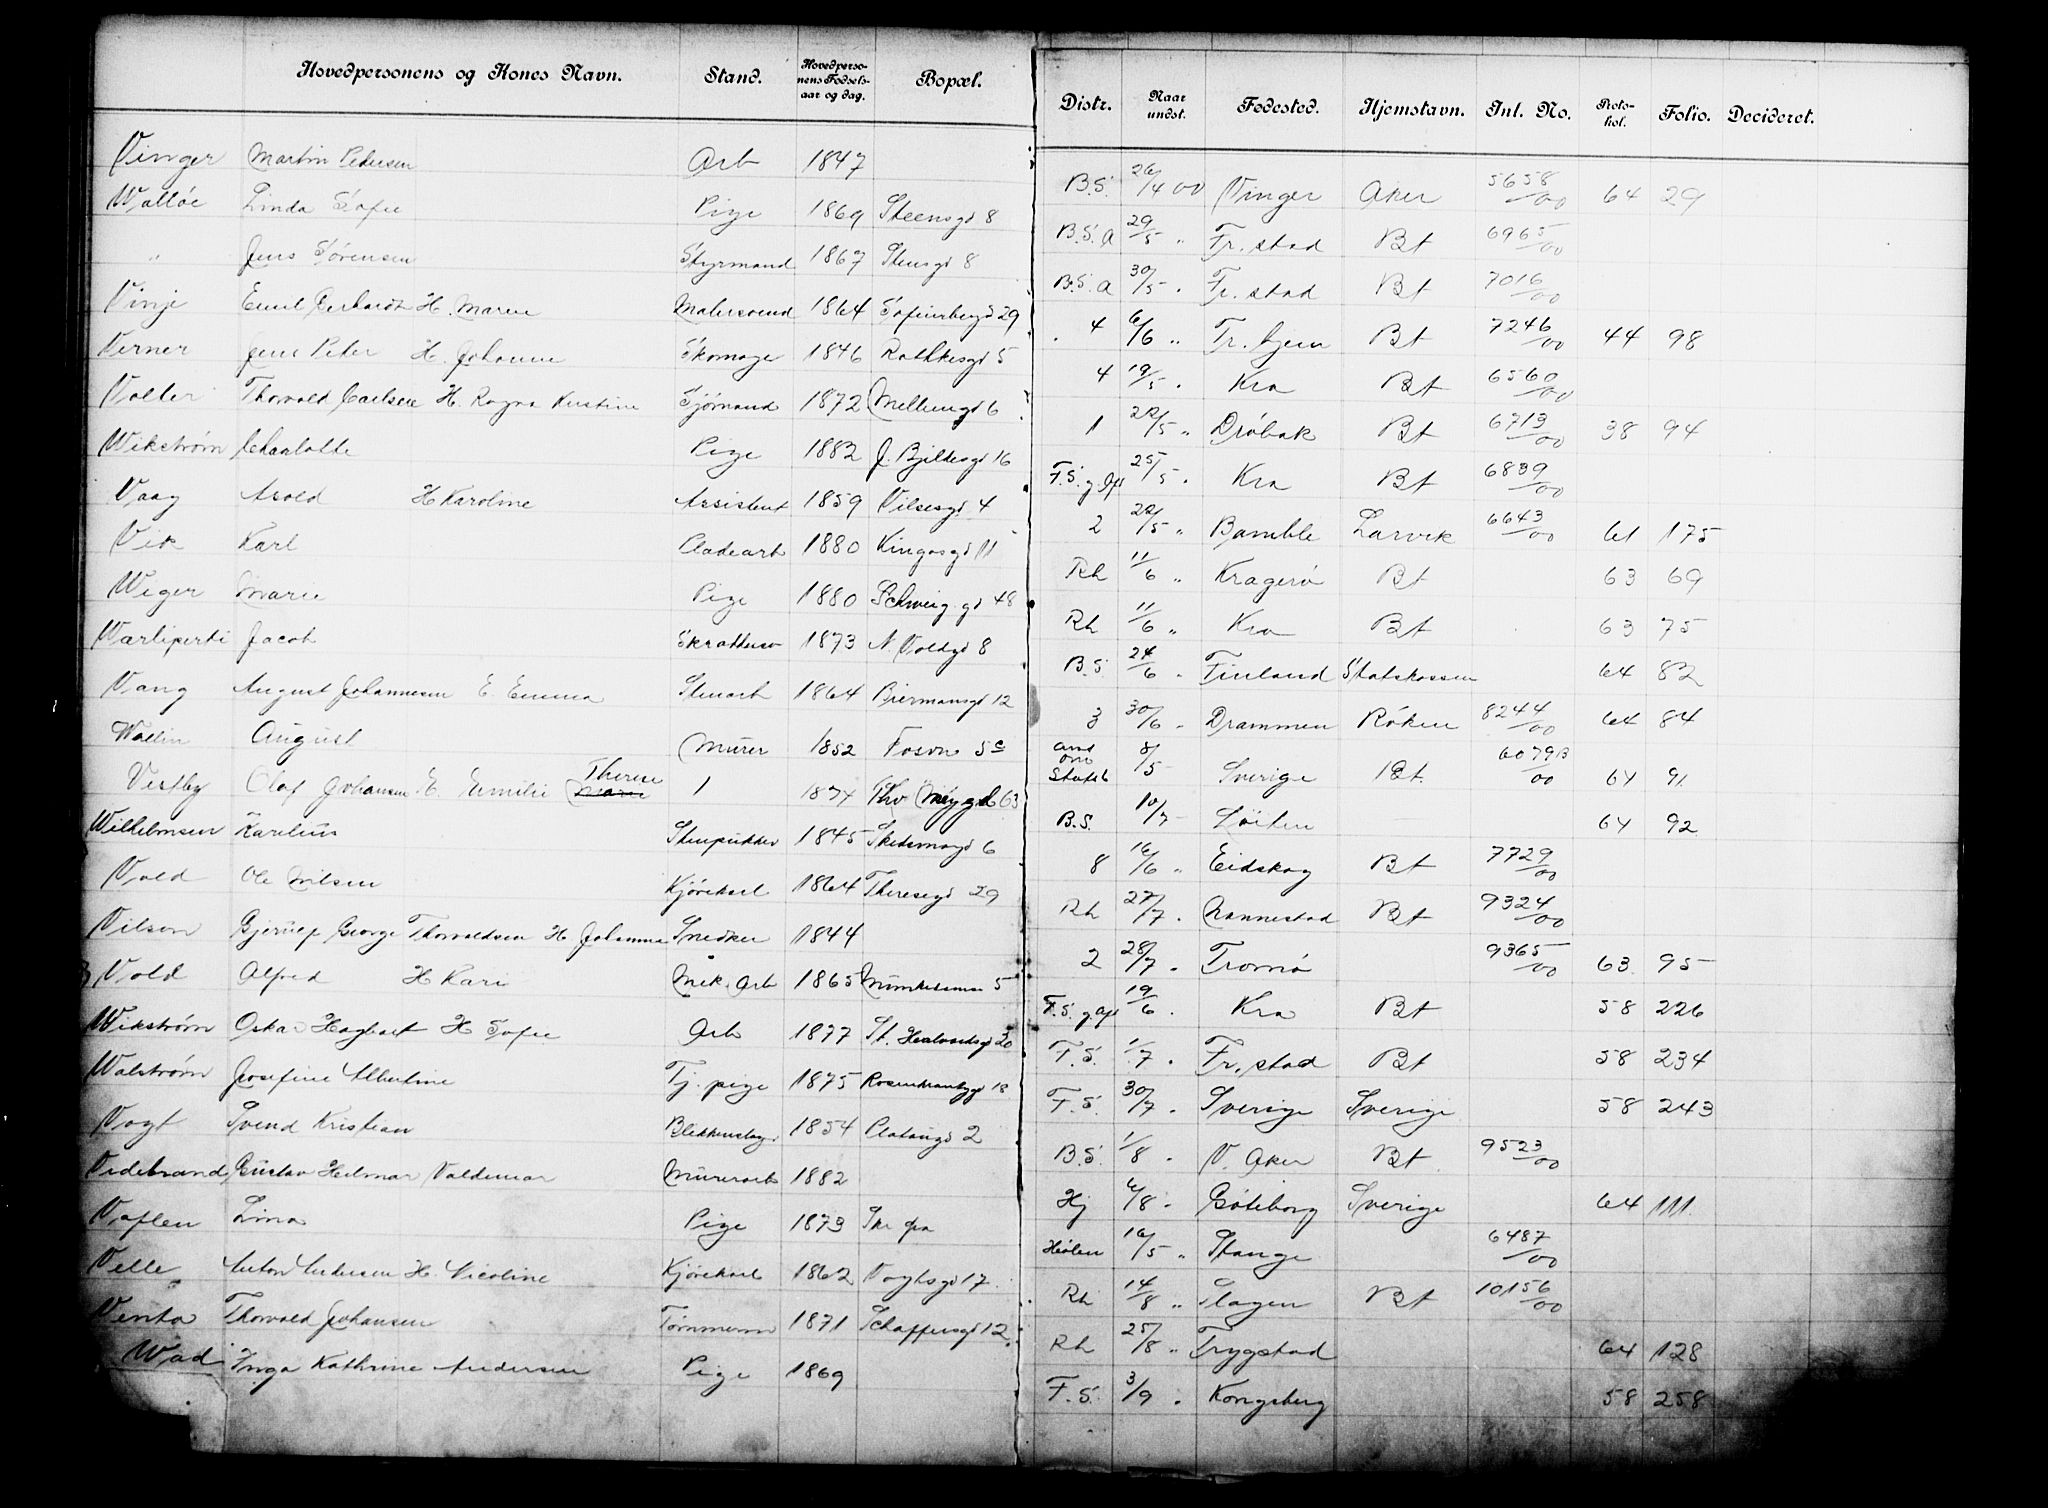 Hovedpersonens og Kones Navn. Stand. Hovedperso-nens Fødsels-aar og dag. Bopæl. Distr. Naar undst. Fødested. Hjemstavn. Int. No. Proto-kol. Folio. Decideret.
Vinger Martin Pedersen Arb 1847 B.S. 26/4 00 Vinger Aker 5658/00 64 29
Walløe Linda Sofie Pige 1869 Steensgd 8 B.S. a 29/5 " Fr. stad Bt 6965/00
" Jens Sørensen Styrmand 1867 Stensgd 8 B.S. a 30/5 " Fr. stad Bt 7016/00
Vinje Emil Gerhardt H. Maren Malersvend 1864 Sofienbergd 29 4 6/6 " Tr. hjem Bt 7246/00 44 98
Verner Jens Peter H. Johanne Skomager 1846 Rathkesgd 5 4 19/5 " Kra Bt 6560/00
Valler Thorvald Carlsen H. Ragna Kristine Sjømand 1872 Mellumgd 6 1 22/5 " Drøbak Bt 6713/00 38 94
Wikstrøm Charlotte Pige 1882 J. Bjelkesgd 16 F.S. g Aps 25/5 " Kra Bt 6839/00
Vaag Arold H Karoline Assistent 1859 Vilsesgd 4 2 22/5 " Bamble Larvik 6643/00 61 175
Vik Karl Pladearb 1880 Kingosgd 11 Rh 11/6 " Kragerø Bt 63 69
Wiger Marie Pige 1880 Schweig. gd 48 Rh 11/6 " Kra Bt 63 75
Warliperti Jacob 1873 N Voldgd 8 B.S. 24/6 " Finland Statskassen 64 82
Vang August Johannesen E. Emma Stenarb 1864 Biermansgd 12 3 30/6 " Drammen Røken 8244/00 64 84
Wallin August Murer 1852 Fosvn 5c Statsb 8/5 Sverige Bt 6079B/00 64 91
Vestby Olaf Johansen E. Emilie Therese 1 1874 Thv Meyg.gd 63 B.S. 10/7 Løiten 64 92
Wilhelmsen Karelius Stenpukker 1845 Skedsmogd 6 8 16/6 " Eidskog Bt 7729/00
Vold Ole Nilsen Kjørekarl 1864 Theresegd 29 Rh 27/7 " Nannestad Bt 9324/00
Vilson Gjerup George Thorvaldsen H Johanna Snedker 1844 2 28/7 " Tromsø 9365/00 63 95
Vold Alfred H Kari Mek. Arb 1865 5 F.S. g. Aps 19/6 " Kra Bt 58 226
Wikstrøm Oskar Hagbart H Sofie Arb 1877 St. Hallvardsgd 20 F.S. 1/7 " Fr. stad Bt 58 234
Walstrøm Josefine Albertine Tj. pige 1875 Rosenkrantzgd 18 F.S. 30/7 " Sverige Sverige 58 243
Vogt Svend Kristian Blikkenslager 1854 Platougd 2 B.S. 1/8 " V. Aker Bt 9523/00
Videbrand Gustav Hilmar Valdemar Murerarb 1882 Hj 6/8 " Gøteborg Sverige 64 111
Vaflen Lina Pige 1873 Hølen 16/5 " Stange 6487/00
Velle Anton Andersen H. Nicoline Kjørekarl 1862 Vogtsgd 17 Rh 14/8 " Slagen Bt 10156/00
Venta Thorvald Johansen Tømmerm 1871 Schaffersgd 12 Rh 25/8 " Trygstad 64 128
Wad Inga Kathrine Andersen Pige 1869 F.S. 3/9 " Kongsberg 58 258